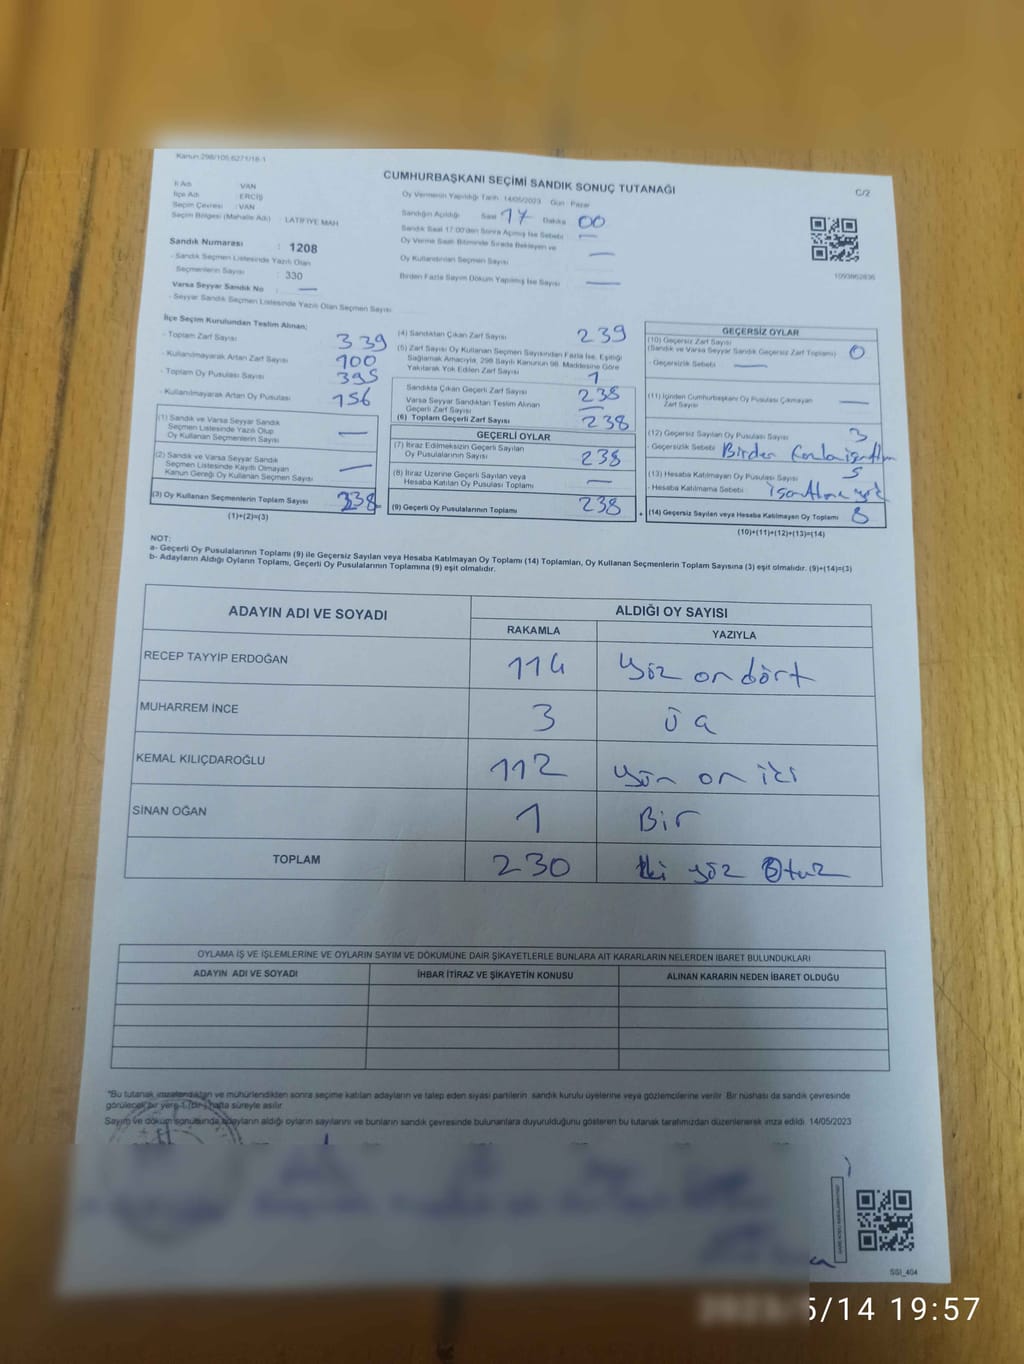 Kanun:298/105,6271/18-1
CUMHURBAŞKANI SEÇİMİ SANDIK SONUÇ TUTANAĞI
C/2
İl Adı : VAN
İlçe Adı : ERCİŞ
Seçim Çevresi : VAN
Seçim Bölgesi (Mahalle Adı) : LATİFİYE MAH
Sandık Numarası : 1208
- Sandık Seçmen Listesinde Yazılı Olan
Seçmenlerin Sayısı : 330
Varsa Seyyar Sandık No : —
- Seyyar Sandık Seçmen Listesinde Yazılı Olan Seçmen Sayısı
Oy Vermenin Yapıldığı Tarih: 14/05/2023 Gün : Pazar
Sandığın Açıldığı Saat 17 Dakika 00
Sandık Saat 17:00'den Sonra Açılmış İse Sebebi —
Oy Verme Saati Bitiminde Sırada Bekleyen ve
Oy Kullandırılan Seçmen Sayısı —
Birden Fazla Sayım Döküm Yapılmış İse Sayısı —
1093862836
İlçe Seçim Kurulundan Teslim Alınan;
- Toplam Zarf Sayısı 339
- Kullanılmayarak Artan Zarf Sayısı 100
- Toplam Oy Pusulası Sayısı 395
- Kullanılmayarak Artan Oy Pusulası 156
(1) Sandık ve Varsa Seyyar Sandık
Seçmen Listesinde Yazılı Olup
Oy Kullanan Seçmenlerin Sayısı —
(2) Sandık ve Varsa Seyyar Sandık
Seçmen Listesinde Kayıtlı Olmayan
Kanun Gereği Oy Kullanan Seçmen Sayısı —
(3) Oy Kullanan Seçmenlerin Toplam Sayısı 238
(1)+(2)=(3)
(4) Sandıktan Çıkan Zarf Sayısı 239
(5) Zarf Sayısı Oy Kullanan Seçmen Sayısından Fazla İse, Eşitliği
Sağlamak Amacıyla, 298 Sayılı Kanunun 98. Maddesine Göre
Yakılarak Yok Edilen Zarf Sayısı 1
Sandıkta Çıkan Geçerli Zarf Sayısı 238
Varsa Seyyar Sandıktan Teslim Alınan
Geçerli Zarf Sayısı —
(6) Toplam Geçerli Zarf Sayısı 238
GEÇERLİ OYLAR
(7) İtiraz Edilmeksizin Geçerli Sayılan
Oy Pusulalarının Sayısı 238
(8) İtiraz Üzerine Geçerli Sayılan veya
Hesaba Katılan Oy Pusulası Toplamı —
(9) Geçerli Oy Pusulalarının Toplamı 238
GEÇERSİZ OYLAR
(10) Geçersiz Zarf Sayısı
(Sandık ve Varsa Seyyar Sandık Geçersiz Zarf Toplamı) 0
- Geçersizlik Sebebi : —
(11) İçinden Cumhurbaşkanı Oy Pusulası Çıkmayan
Zarf Sayısı —
(12) Geçersiz Sayılan Oy Pusulası Sayısı 3
- Geçersizlik Sebebi : Birden fazla işaretlem
(13) Hesaba Katılmayan Oy Pusulası Sayısı 5
- Hesaba Katılmama Sebebi :
+ (14) Geçersiz Sayılan veya Hesaba Katılmayan Oy Toplamı 8
(10)+(11)+(12)+(13)=(14)
NOT:
a- Geçerli Oy Pusulalarının Toplamı (9) ile Geçersiz Sayılan veya Hesaba Katılmayan Oy Toplamı (14) Toplamları, Oy Kullanan Seçmenlerin Toplam Sayısına (3) eşit olmalıdır. (9)+(14)=(3)
b- Adayların Aldığı Oyların Toplamı, Geçerli Oy Pusulalarının Toplamına (9) eşit olmalıdır.
ADAYIN ADI VE SOYADI
ALDIĞI OY SAYISI
RAKAMLA YAZIYLA
RECEP TAYYİP ERDOĞAN 114 yüz on dört
MUHARREM İNCE 3 üç
KEMAL KILIÇDAROĞLU 112 yüz on iki
SİNAN OĞAN 1 Bir
TOPLAM 230 iki yüz Otuz
OYLAMA İŞ VE İŞLEMLERİNE VE OYLARIN SAYIM VE DÖKÜMÜNE DAİR ŞİKAYETLERLE BUNLARA AİT KARARLARIN NELERDEN İBARET BULUNDUKLARI
ADAYIN ADI VE SOYADI İHBAR İTİRAZ VE ŞİKAYETİN KONUSU ALINAN KARARIN NEDEN İBARET OLDUĞU
*Bu tutanak imzalandıktan ve mühürlendikten sonra seçime katılan adayların ve talep eden siyasi partilerin sandık kurulu üyelerine veya gözlemcilerine verilir. Bir nüshası da sandık çevresinde
görülecek bir yere 1 (bir) hafta süreyle asılır.
Sayım ve döküm sonucunda adayların aldığı oyların sayılarını ve bunların sandık çevresinde bulunanlara duyurulduğunu gösteren bu tutanak tarafımızdan düzenlenerek imza edildi. 14/05/2023
SSI_404
5/14 19:57